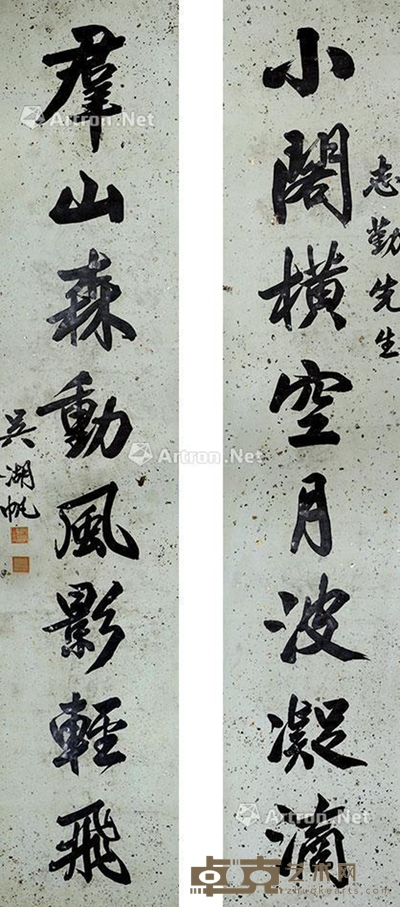 小閣橫空月波凝滴
志勤先生
羣山森動風影輕飛
吳湖帆
Artron.Net
Artron.Net
Artron.Net
Artron.Net
卓克艺术网